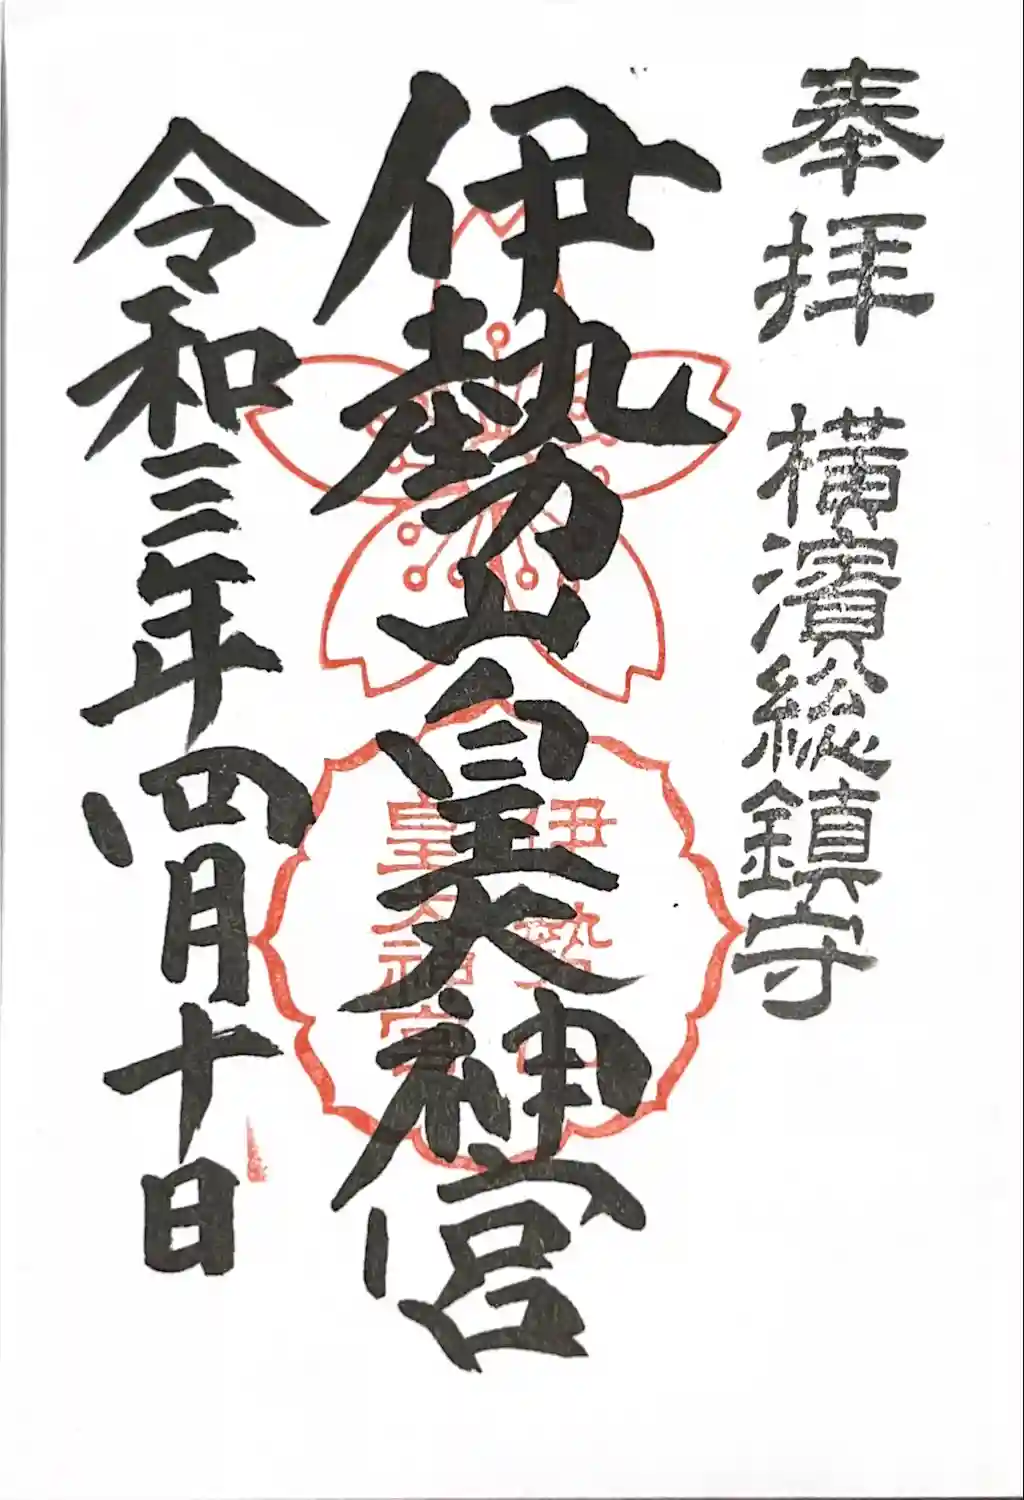 奉拝 横濱総鎮守
伊勢山皇大神宮
令和三年四月十日
伊勢山
皇大神宮